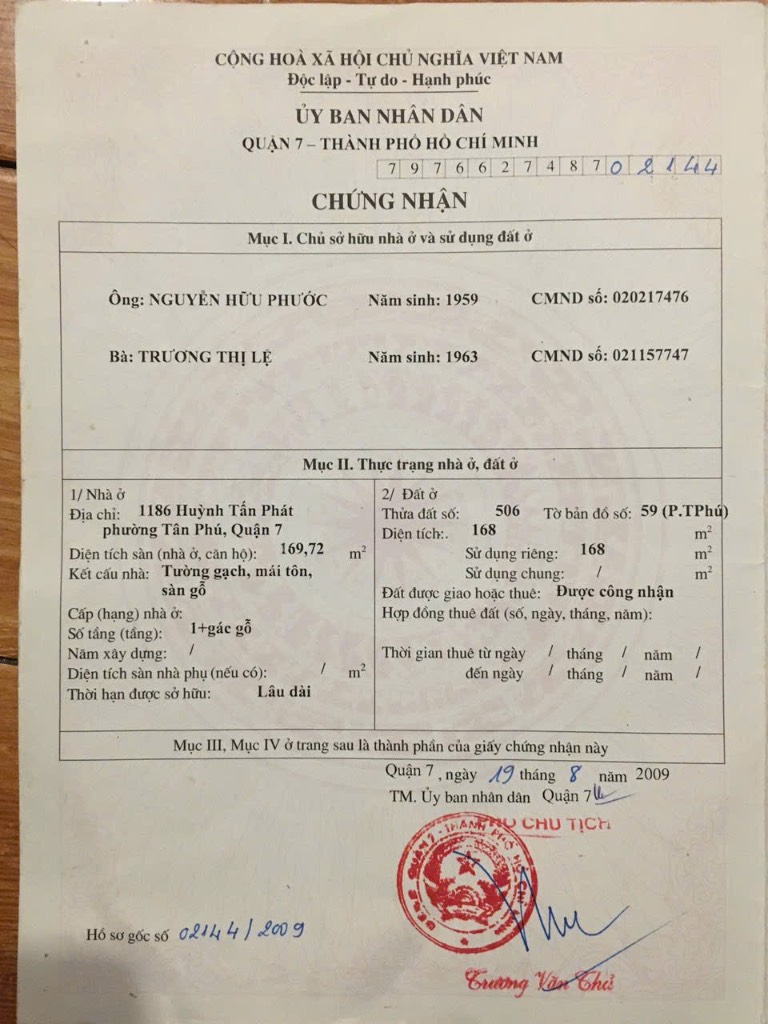 CỘNG HOÀ XÃ HỘI CHỦ NGHĨA VIỆT NAM
Độc lập - Tự do - Hạnh phúc
ỦY BAN NHÂN DÂN
QUẬN 7 – THÀNH PHỐ HỒ CHÍ MINH
7 9 7 6 6 2 7 4 8 7 0 2 1 4 4
CHỨNG NHẬN
Mục I. Chủ sở hữu nhà ở và sử dụng đất ở
Ông: NGUYỄN HỮU PHƯỚC Năm sinh: 1959 CMND số: 020217476
Bà: TRƯƠNG THỊ LỆ Năm sinh: 1963 CMND số: 021157747
Mục II. Thực trạng nhà ở, đất ở
1/ Nhà ở
Địa chỉ: 1186 Huỳnh Tấn Phát
phường Tân Phú, Quận 7
Diện tích sàn (nhà ở, căn hộ): 169,72 m²
Kết cấu nhà: Tường gạch, mái tôn,
sàn gỗ
Cấp (hạng) nhà ở:
Số tầng (tầng): 1+gác gỗ
Năm xây dựng: /
Diện tích sàn nhà phụ (nếu có): / m²
Thời hạn được sở hữu: Lâu dài
2/ Đất ở
Thửa đất số: 506 Tờ bản đồ số: 59 (P.TPhú)
Diện tích:. 168 m²
Sử dụng riêng: 168 m²
Sử dụng chung: / m²
Đất được giao hoặc thuê: Được công nhận
Hợp đồng thuê đất (số, ngày, tháng, năm):
Thời gian thuê từ ngày / tháng / năm /
đến ngày / tháng / năm /
Mục III, Mục IV ở trang sau là thành phần của giấy chứng nhận này
Quận 7, ngày 19 tháng 8 năm 2009
TM. Ủy ban nhân dân Quận 7
PHÓ CHỦ TỊCH
U.B.N.D QUẬN 7 - THÀNH PHỐ HỒ CHÍ MINH
Hồ sơ gốc số 02144/2009
Trương Văn Thử